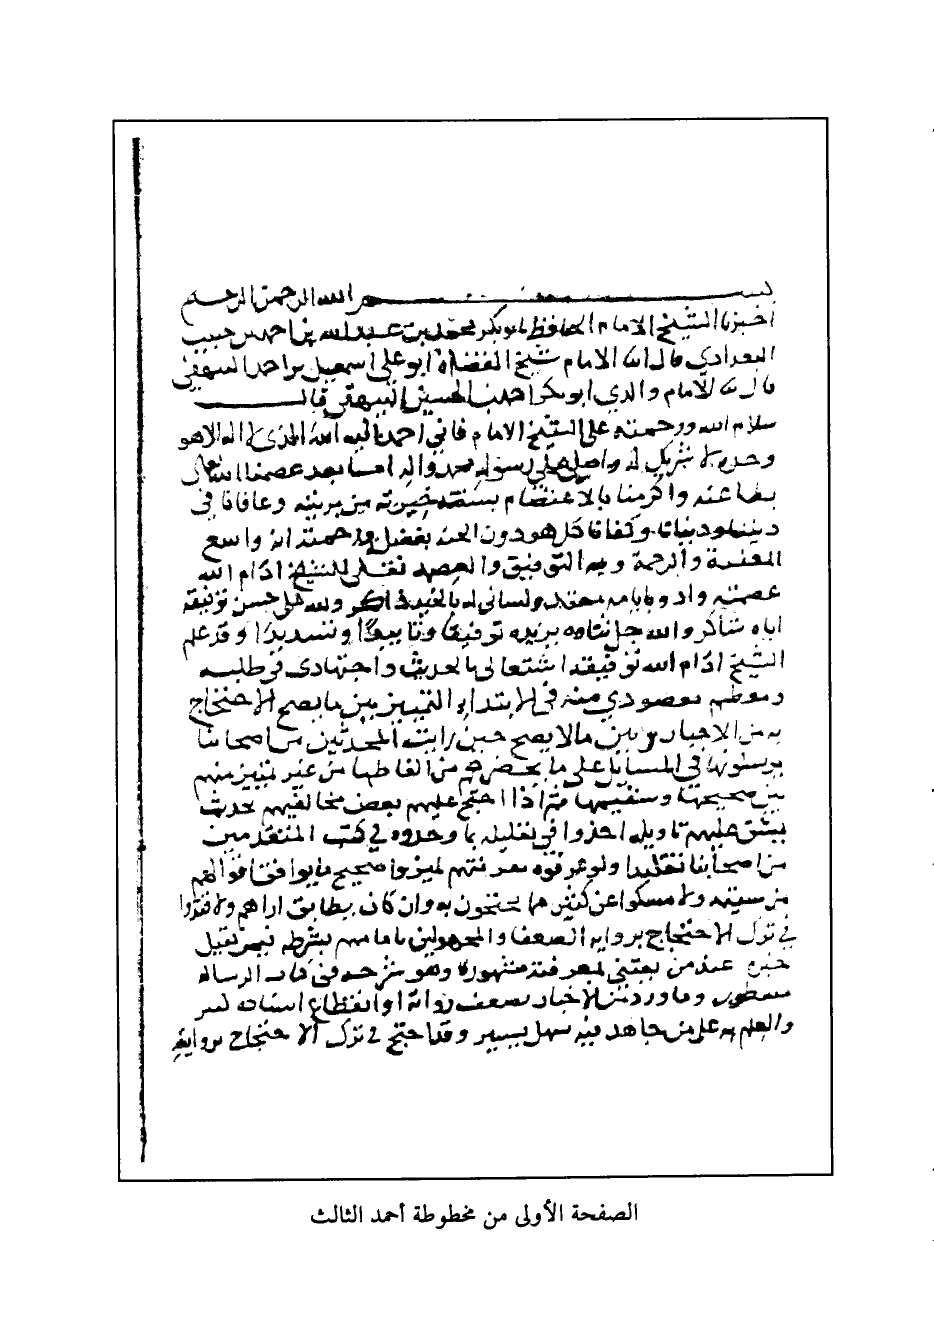 بسم الله الرحمن الرحيم
اخبرنا الشيخ الامام الحافظ ابو بكر محمد بن عبد الله بن احمد بن حبيب
البغدادي قال انا الامام شيخ القضاة ابو علي اسمعيل بن احمد البيهقي
قال انا الامام والدي ابو بكر احمد بن الحسين البيهقي قال
سلام الله ورحمته على الشيخ الامام فاني احمد اليه الله الذي لا اله الا هو
وحده لا شريك له واصلي على رسوله محمد واله اما بعد عصمنا الله تعالى
بطاعته واكرمنا بالاعتصام بسنة خيرته من بريته وعافانا في
ديننا ودنيانا وكفانا كل هول دون الجنة بفضله ورحمته انه واسع
المغفرة والرحمة وبه التوفيق والعصمة فقلبي للشيخ ادام الله
عصمته وايده بايامه معتقد ولساني له بالخير ذاكر ولله على حسن توفيقه
اياه شاكر والله جل ثناؤه يزيده توفيقا وتاييدا وتسديدا وقد علم
الشيخ ادام الله توفيقه اشتغالي بالحديث واجتهادي في طلبه
ومعظم مقصودي منه في الابتداء التمييز بين ما يصح الاحتجاج
به من الاخبار وبين ما لا يصح حين رايت المحدثين من اصحابنا
يرسلونها في المسايل على ما يحضرهم من الفاظها من غير تمييز منهم
بين صحيحها وسقيمها ثم اذا احتج عليهم بعض مخالفيهم بحديث
يشق عليهم تاويله اخذوا في تعليله بما وجدوه في كتب المتقدمين
من اصحابنا تقليدا ولو عرفوه معرفتهم لميزوا صحيح ما يوافق اقوالهم
من سقيمه ولامسكوا عن كثير مما يحتجون به وان كان يطابق اراهم ولاقتدوا
في ترك الاحتجاج برواية الضعفا والمجهولين بامامهم فشرطه فيمن يقبل
خبره عند من يعتني بمعرفته مشهور وهو بشرحه في كتاب الرسالة
مسطور وما ورد من الاخبار بضعف رواته او انقطاع اسناده كثير
والعلم به على من جاهد فيه سهل يسير وقد احتج في ترك الاحتجاج برواية
الصفحة الأولى من مخطوطة أحمد الثالث